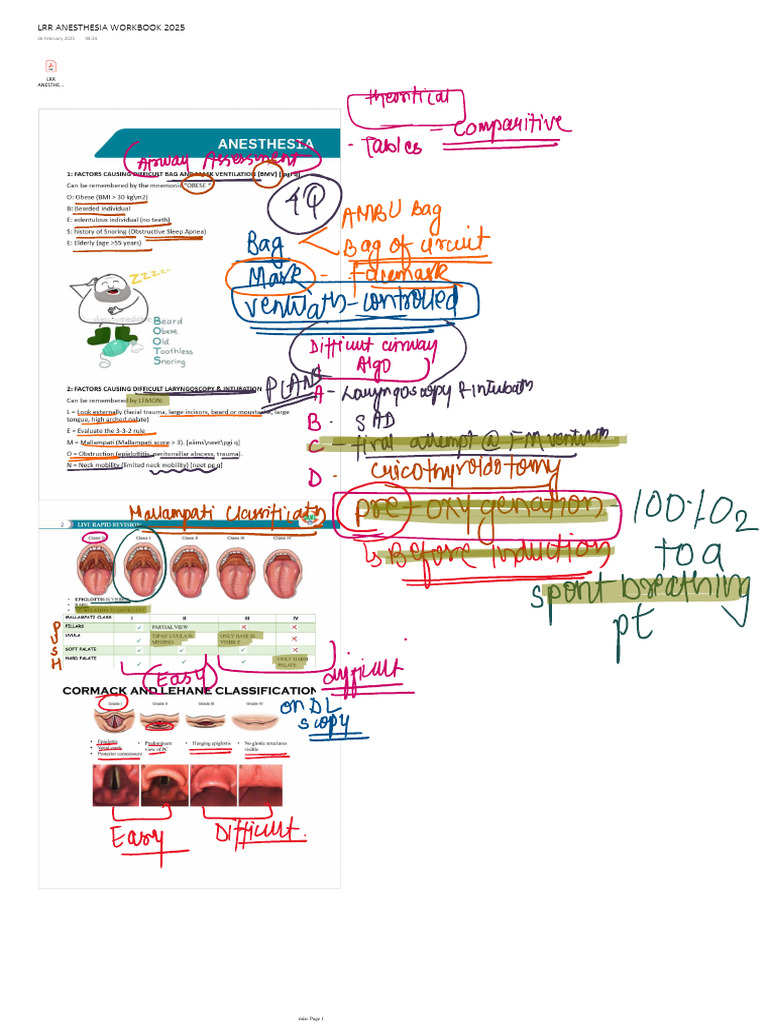 LRR ANESTHESIA WORKBOOK 2025
26 February 2025 08:34
LRR
ANESTHE...
theoritical
- Tables - Comparitive
ANESTHESIA
Airway Assessment
1: FACTORS CAUSING DIFFICULT BAG AND MASK VENTILATION [BMV]
Can be remembered by the mnemonic "OBESE"
O: Obese (BMI > 30 kg\m2)
B: Bearded individual
E: edentulous individual (no teeth)
S: history of Snoring (Obstructive Sleep Apnea)
E: Elderly (age >55 years)
4Q
Bag
AMBU Bag
Bag of circuit
Mask - Facemask
Ventilatn - controlled
zzzz
Beard
Obese
Old
Toothless
Snoring
Difficult airway
Algo
2: FACTORS CAUSING DIFFICULT LARYNGOSCOPY & INTUBATION
Can be remembered by LEMON:
L = Look externally (facial trauma, large incisors, beard or moustache, large
tongue, high arched palate)
E = Evaluate the 3-3-2 rule
M = Mallampati (Mallampati score > 3). [aiims\neet\pgi q]
O = Obstruction (epiglottitis, peritonsillar abscess, trauma).
N = Neck mobility (limited neck mobility) (neet pg q)
PLANS
A - Laryngoscopy & intubatn
B - SAD
C - final attempt @ FM ventilatn
D - Cricothyroidotomy
Pre-oxygenation - 100% O2
to a
spont breathing
pt
↳ Before induction
Mallampati Classificatn
2 LIVE RAPID REVISION
Class 0 Class I Class II Class III Class IV
• EPIGLOTTIS IS VISIBLE
• RARE
MALLAMPATI CLASS I II III IV
PILLARS ✓ PARTIAL VIEW ✕ ✕
UVULA ✓ TIP OF UVULA IS MISSING ONLY BASE IS VISIBLE ✕
SOFT PALATE ✓ ✓ ✓ ✕
HARD PALATE ✓ ✓ ✓ ONLY HARD PALATE
P
U
S
H
Easy
difficult
CORMACK AND LEHANE CLASSIFICATION
on DL
scopy
Grade I Grade II Grade III Grade IV
• Epiglottis
• Vocal cords
• Posterior commissure
• Predominant view of PC
• Hanging epiglottis
• No glottic structures visible
Easy
Difficult.
misc Page 1